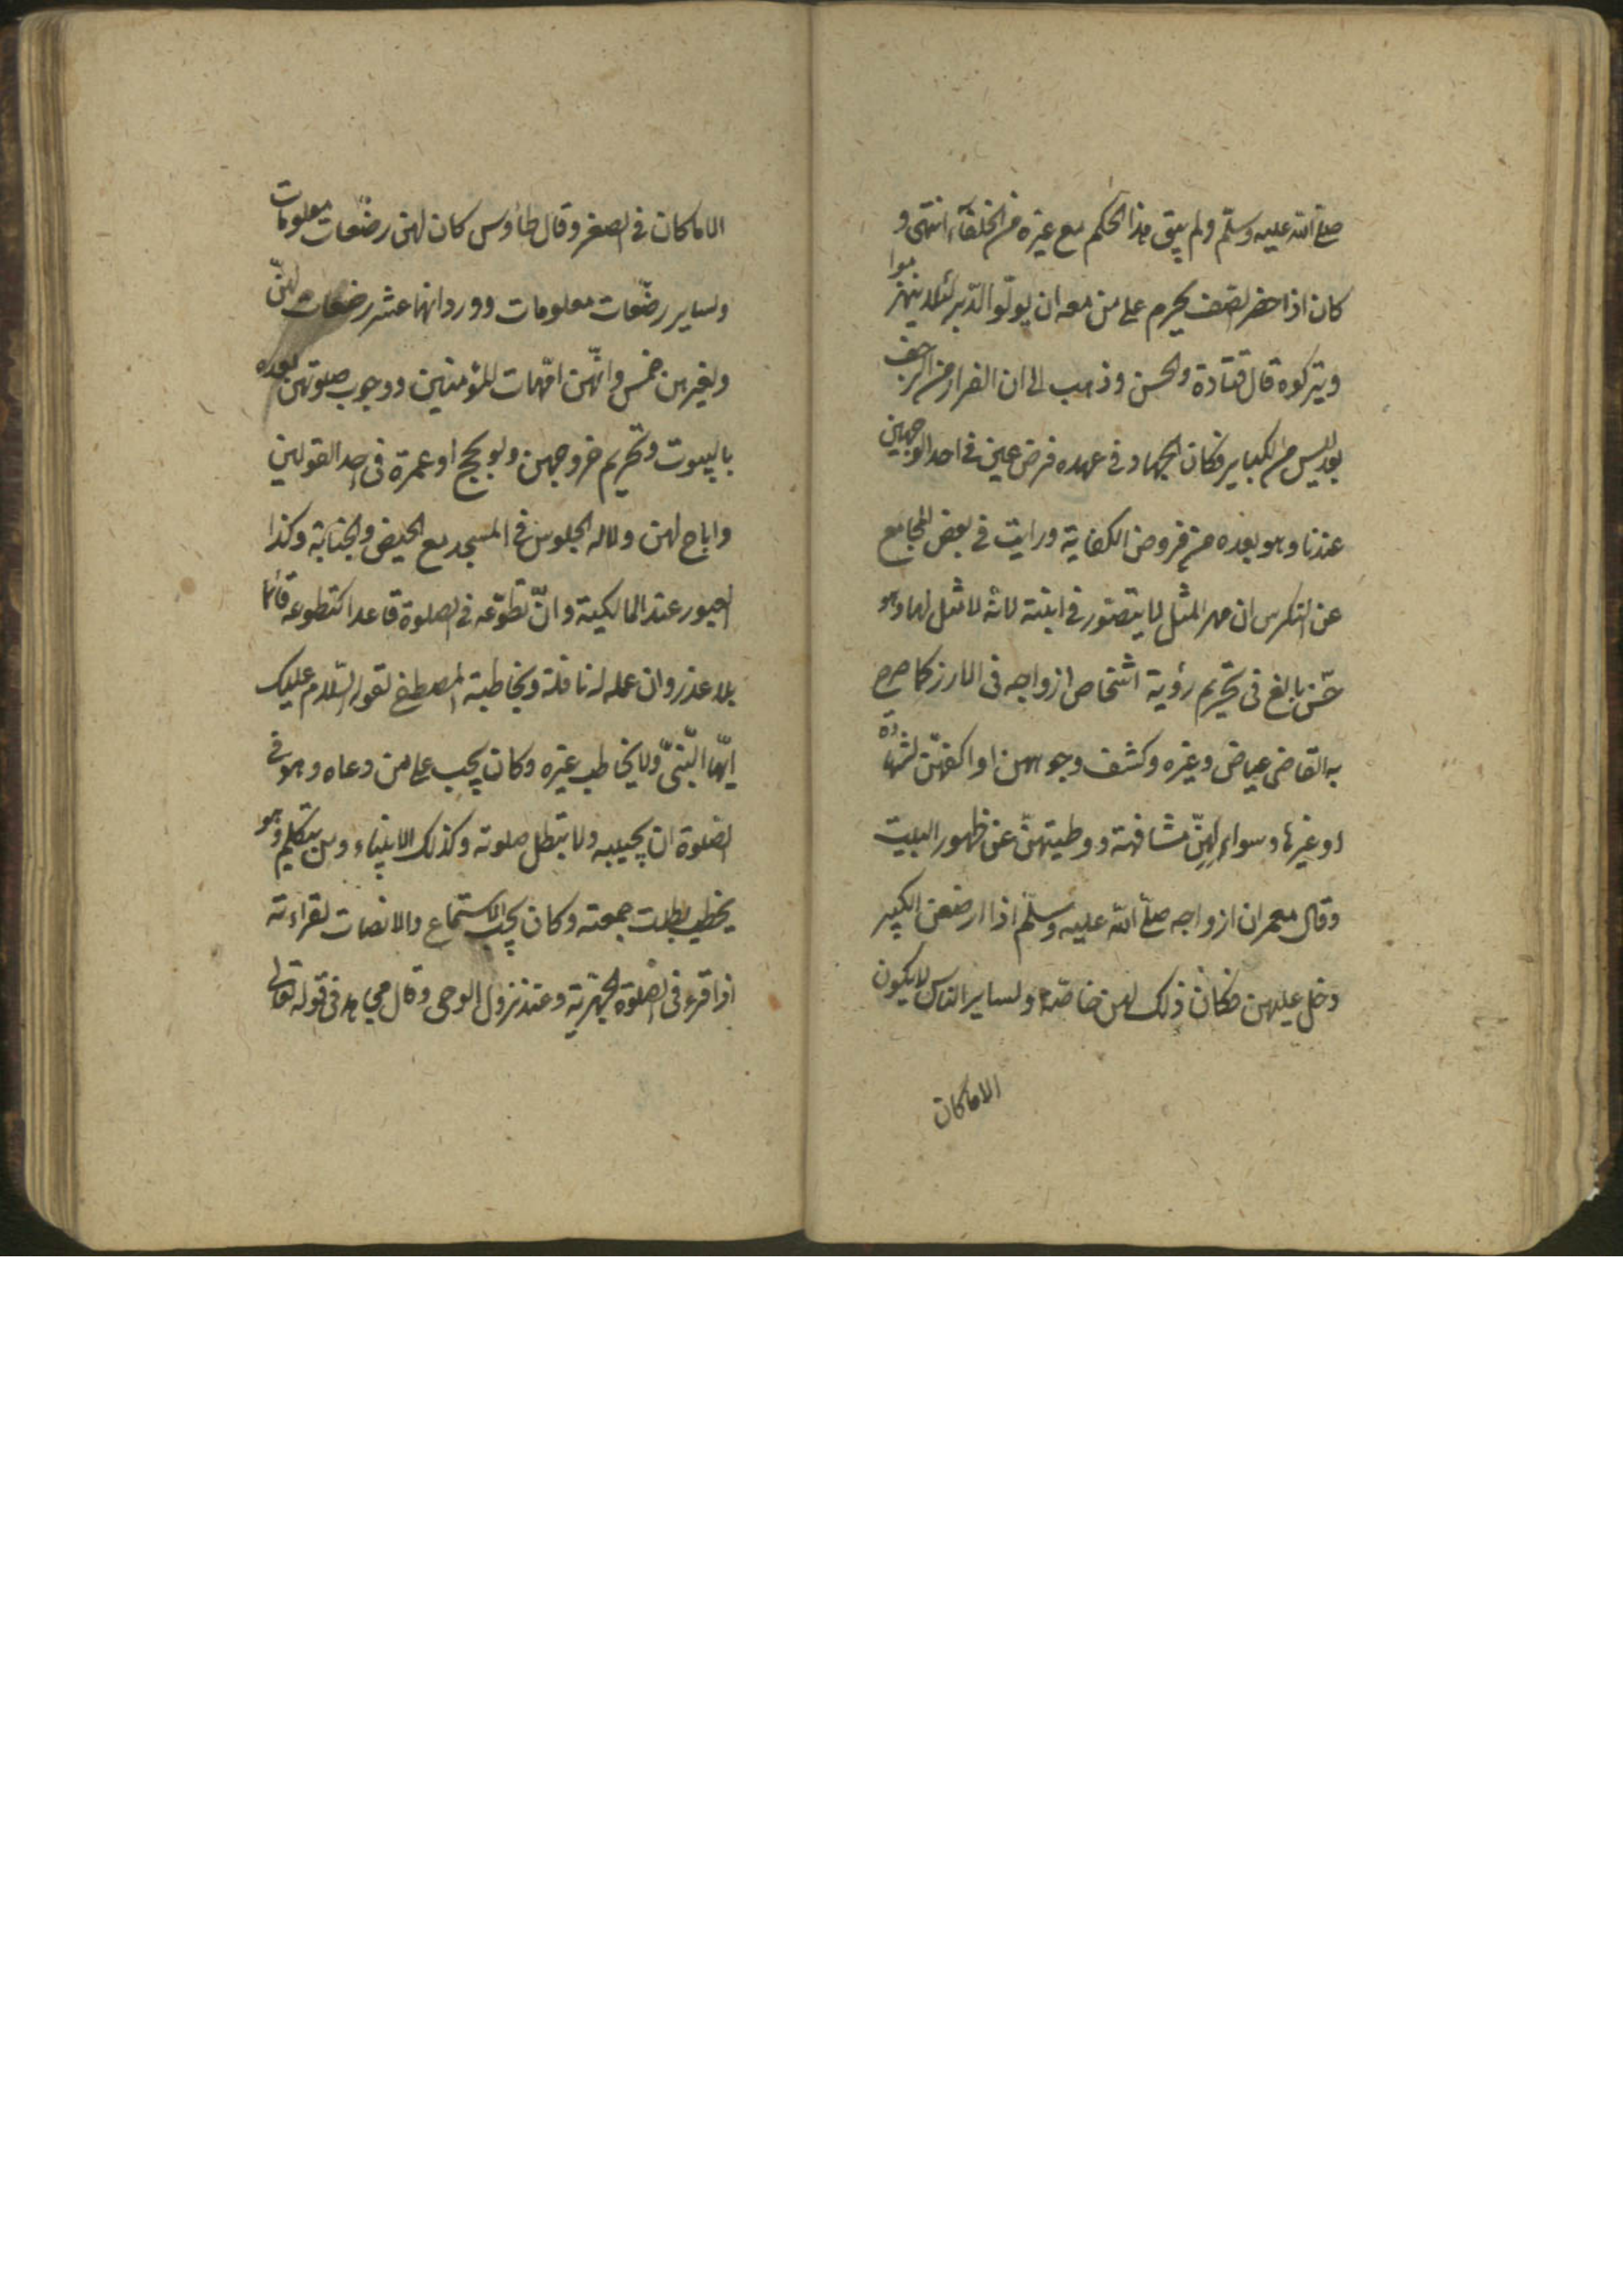 صلى الله عليه وسلم ولم يبق هذا الحكم مع غيره من الخلفاء انتهى و
كان اذا حضر الصف يحرم على من معه ان يولوا الدبر لئلا ينهزموا
ويتركوه قال قتادة والحسن وذهب الى ان الفرار من الزحف
بعد ليس من الكباير فكان الجهاد فى عهده فرض عين فى احد الوجهين
عندنا وهو بعده من فروض الكفاية ورايت فى بعض المجامع
عن ان مهر المثل لا يتصور فى ابنته لانه لا مثل لها وهو
حسن بالغ فى تحريم رؤية اشخاص ازواجه فى الازر كما صرح
به القاضى عياض وغيره وكشف وجوههن او اكفهن لشهادة
او غيرها وسوالهن مشافهة ووطيتهن عن ظهور البيت
وقال معمر ان ازواجه صلى الله عليه وسلم اذا ارضعن الكبير
دخل عليهن فكان ذلك لهن خاصة ولساير الناس لا يكون
الا ما كان
الا ما كان فى الصغر وقال طاوس كان لهن رضعات معلومات
ولساير رضعات معلومات وورد انها عشر رضعات لهن
ولغيرهن خمس وانهن امهات للمؤمنين ووجوب صلوتهن بعده
بالبيوت وتحريم خروجهن ولو لحج او عمرة فى احد القولين
واباح لهن ولاله الجلوس فى المسجد مع الحيض والجنابة وكذا
العبور عند المالكية وان تطوعه فى الصلوة قاعدا كتطوعه قائما
بلا عذر وان عمله له نافلة ويخاطبه المصطفى لقوله السلام عليك
ايها النبى ولا يخاطب غيره وكان يجب على من دعاه وهو فى
الصلوة ان يجيبه ولا يبطل صلوته وكذلك الانبياء ومن يتكلم وهو
يخطب بطلت جمعته وكان يجب الاستماع والانصات لقراءته
اذا قرء فى الصلوة الجهرية وعند نزول الوحى وقال مجاهد فى قوله تعالى